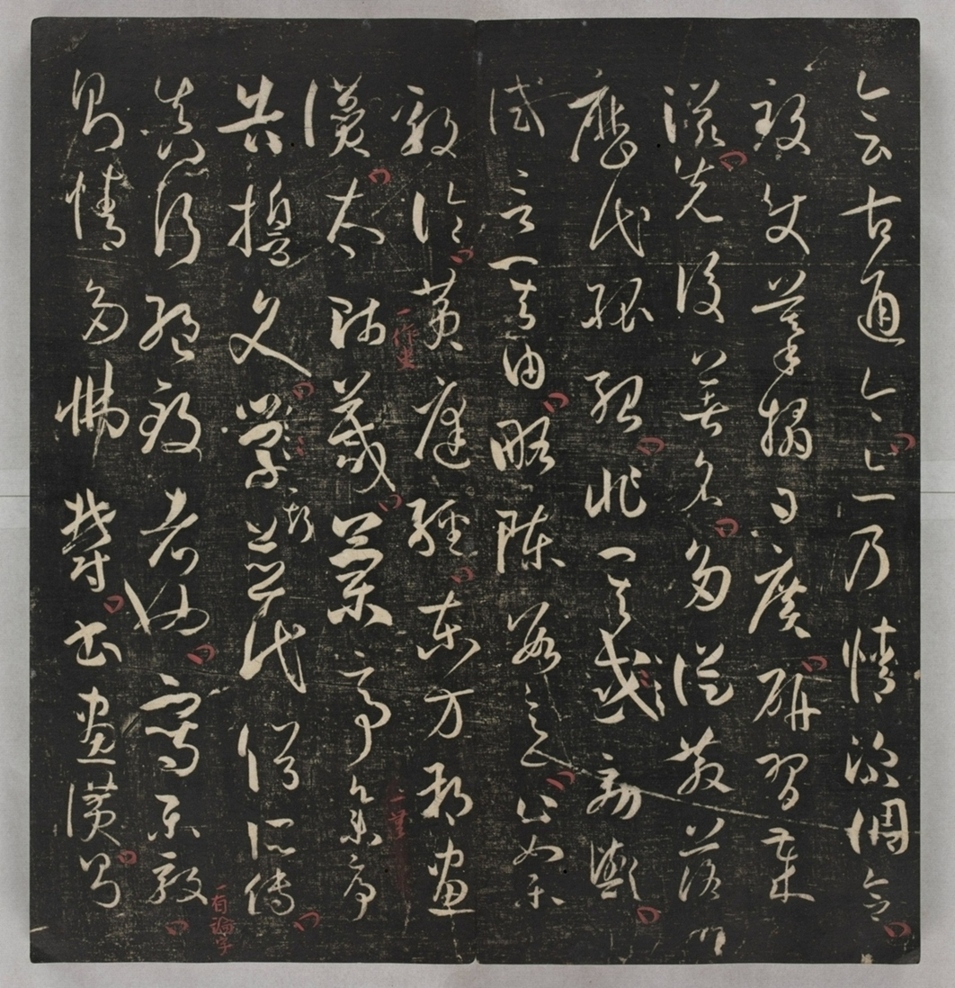 會古通今亦乃情深調合
致使摹搨日廣研習歲
滋先後著名多從散落
歷代孤紹非其效歟
試言其由略陳數意止如樂
毅論黃庭經東方朔畫
讚太師箴蘭亭集序
告誓文斯並代俗所傳
真行絕致者也寫樂毅
則情多怫鬱書畫讚則